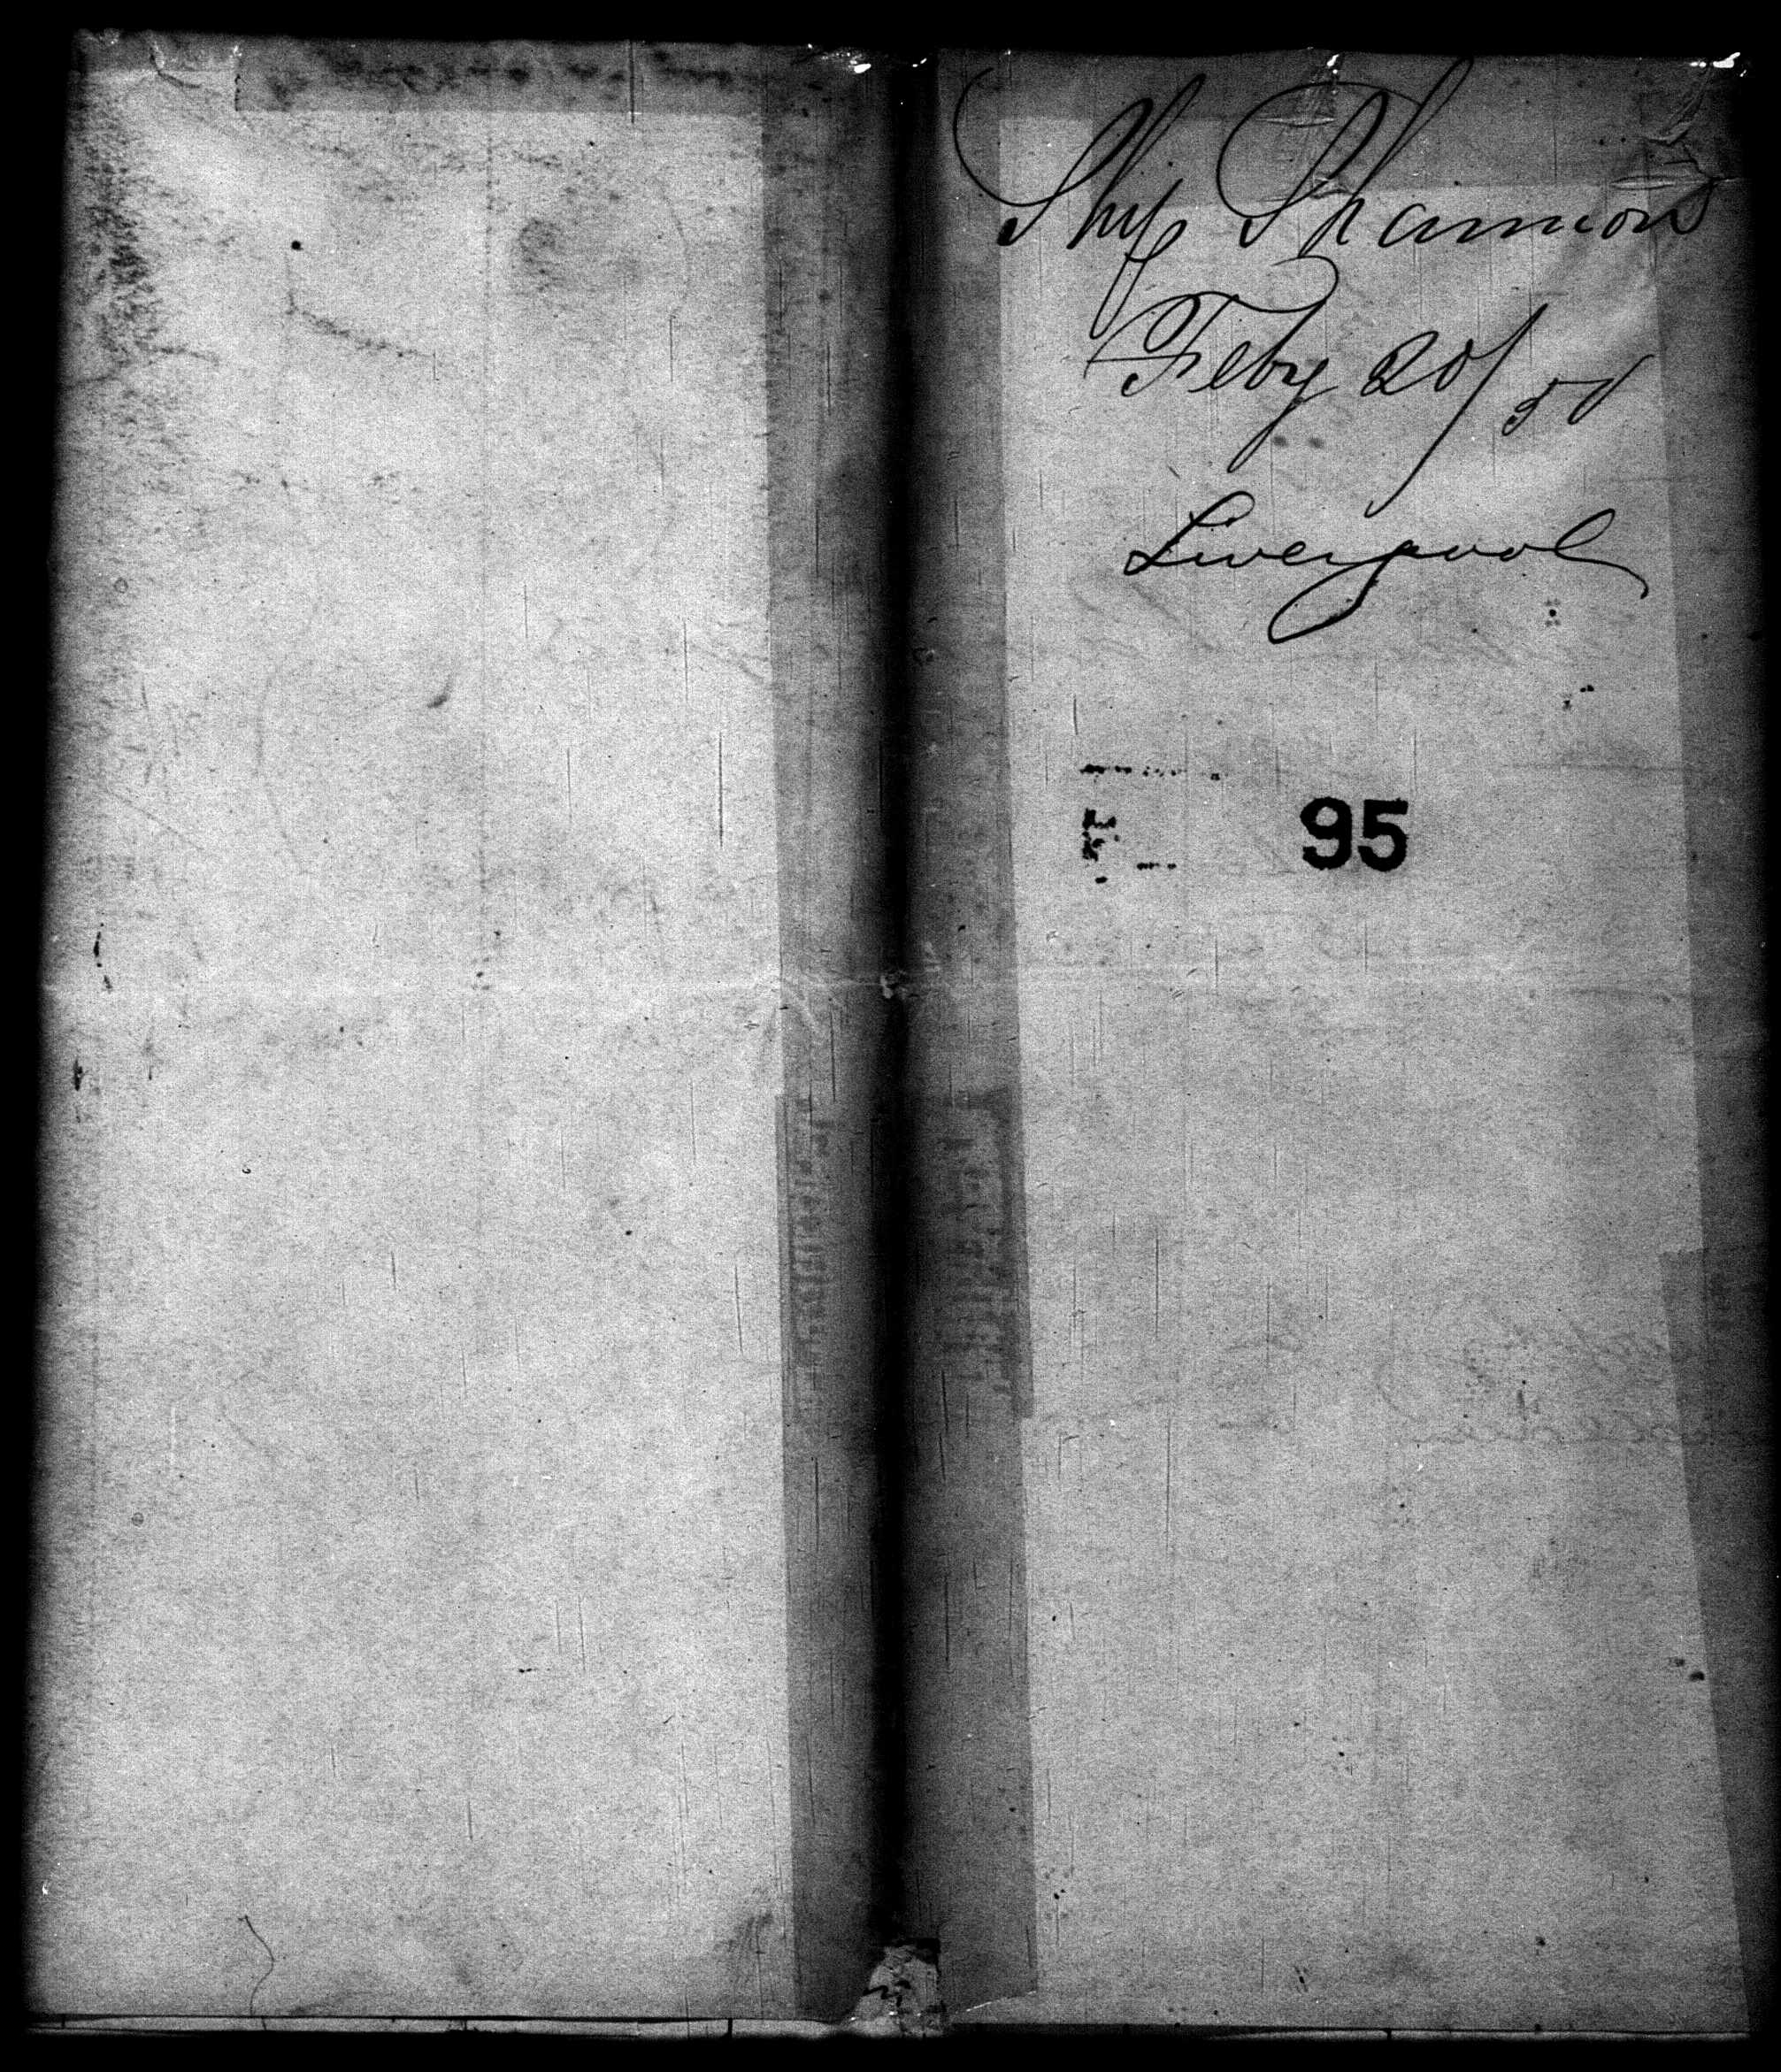 Ship Shannon
Feby 20/50
Liverpool
95